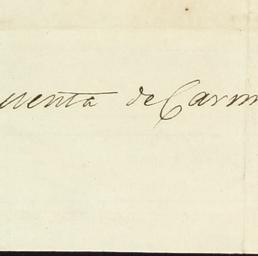 uenta de Carm